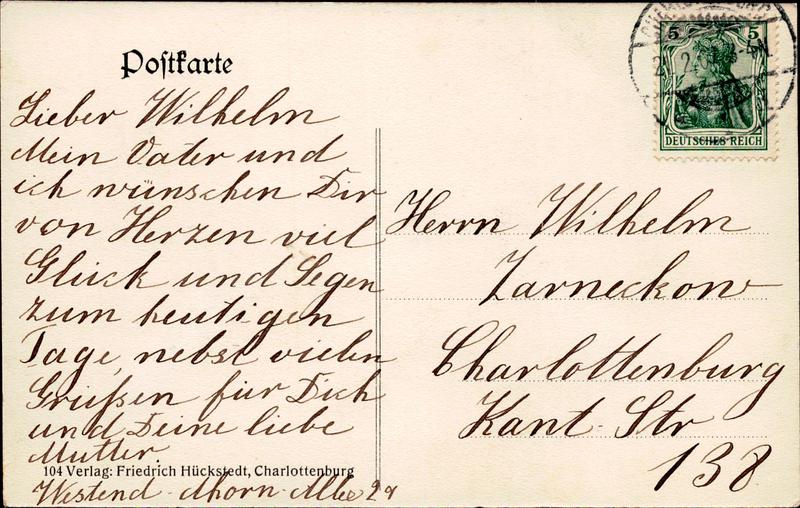 Postkarte
Lieber Wilhelm
Mein Vater und
ich wünschen Dir
von Herzen viel
Glück und Segen
zum heutigen
Tage, nebst vielen
Grüßen für Dich
und Deine liebe
Mutter.
104 Verlag: Friedrich Hückstedt, Charlottenburg
Westend Ahorn-Allee
5 5
DEUTSCHES REICH
Herrn Wilhelm
Zarneckow
Charlottenburg
Kant-Str
138